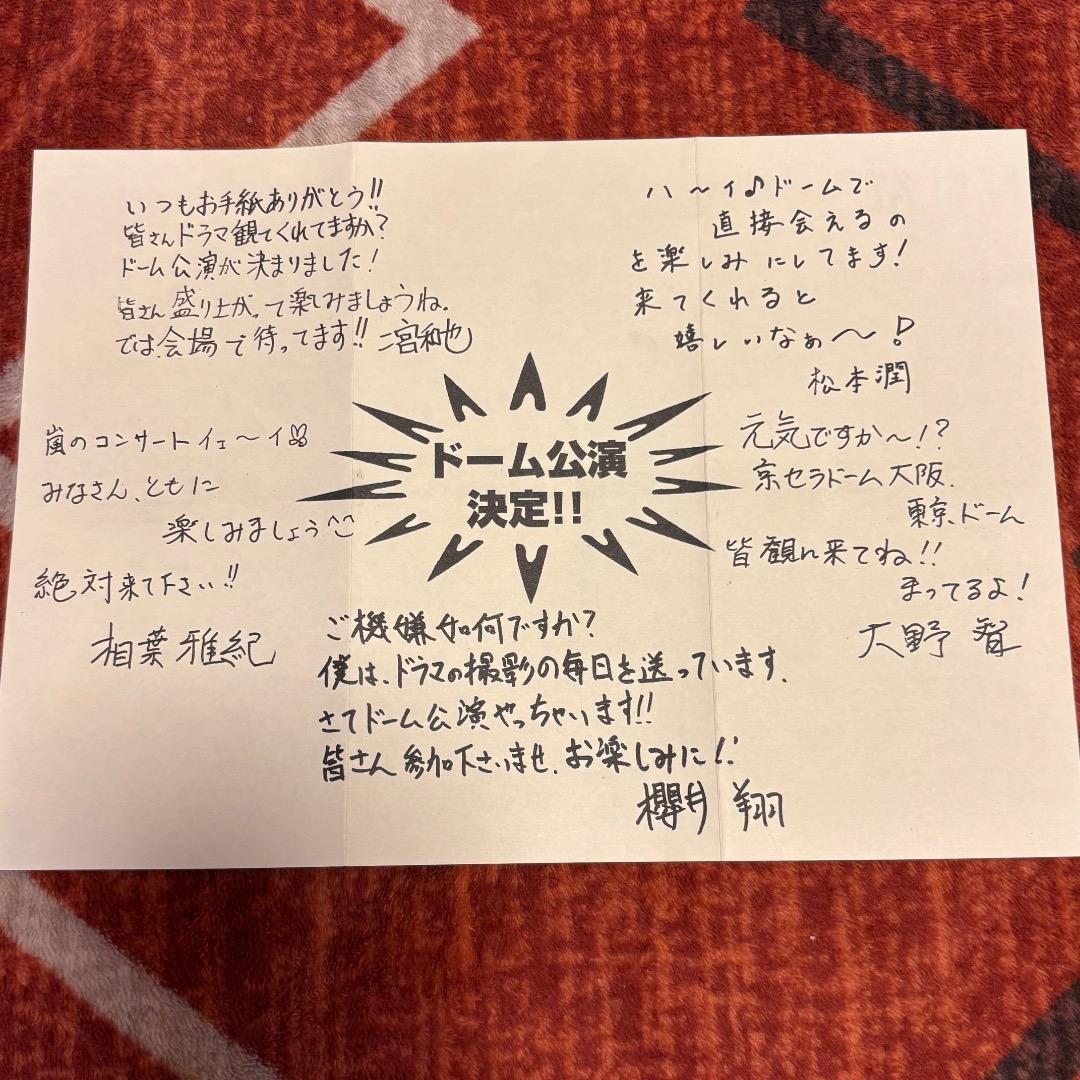 いつもお手紙ありがとう!!
皆さんドラマ観てくれてますか?
ドーム公演が決まりました!
皆さん盛り上がって楽しみましょうね。
では、会場で待ってます!! 二宮和也
ハ〜イ♪ドームで
直接会えるの
を楽しみにしてます!
来てくれると
嬉しいなぁ〜!
松本潤
嵐のコンサートイェ〜イ
みなさん、ともに
楽しみましょう^^
絶対来て下さい!!
相葉雅紀
ドーム公演
決定!!
元気ですか〜!?
京セラドーム大阪.
東京ドーム
皆観に来てね!!
まってるよ!
大野智
ご機嫌如何ですか?
僕は、ドラマの撮影の毎日を送っています.
さてドーム公演やっちゃいます!!
皆さん参加下さいませ.お楽しみに!!
櫻井翔